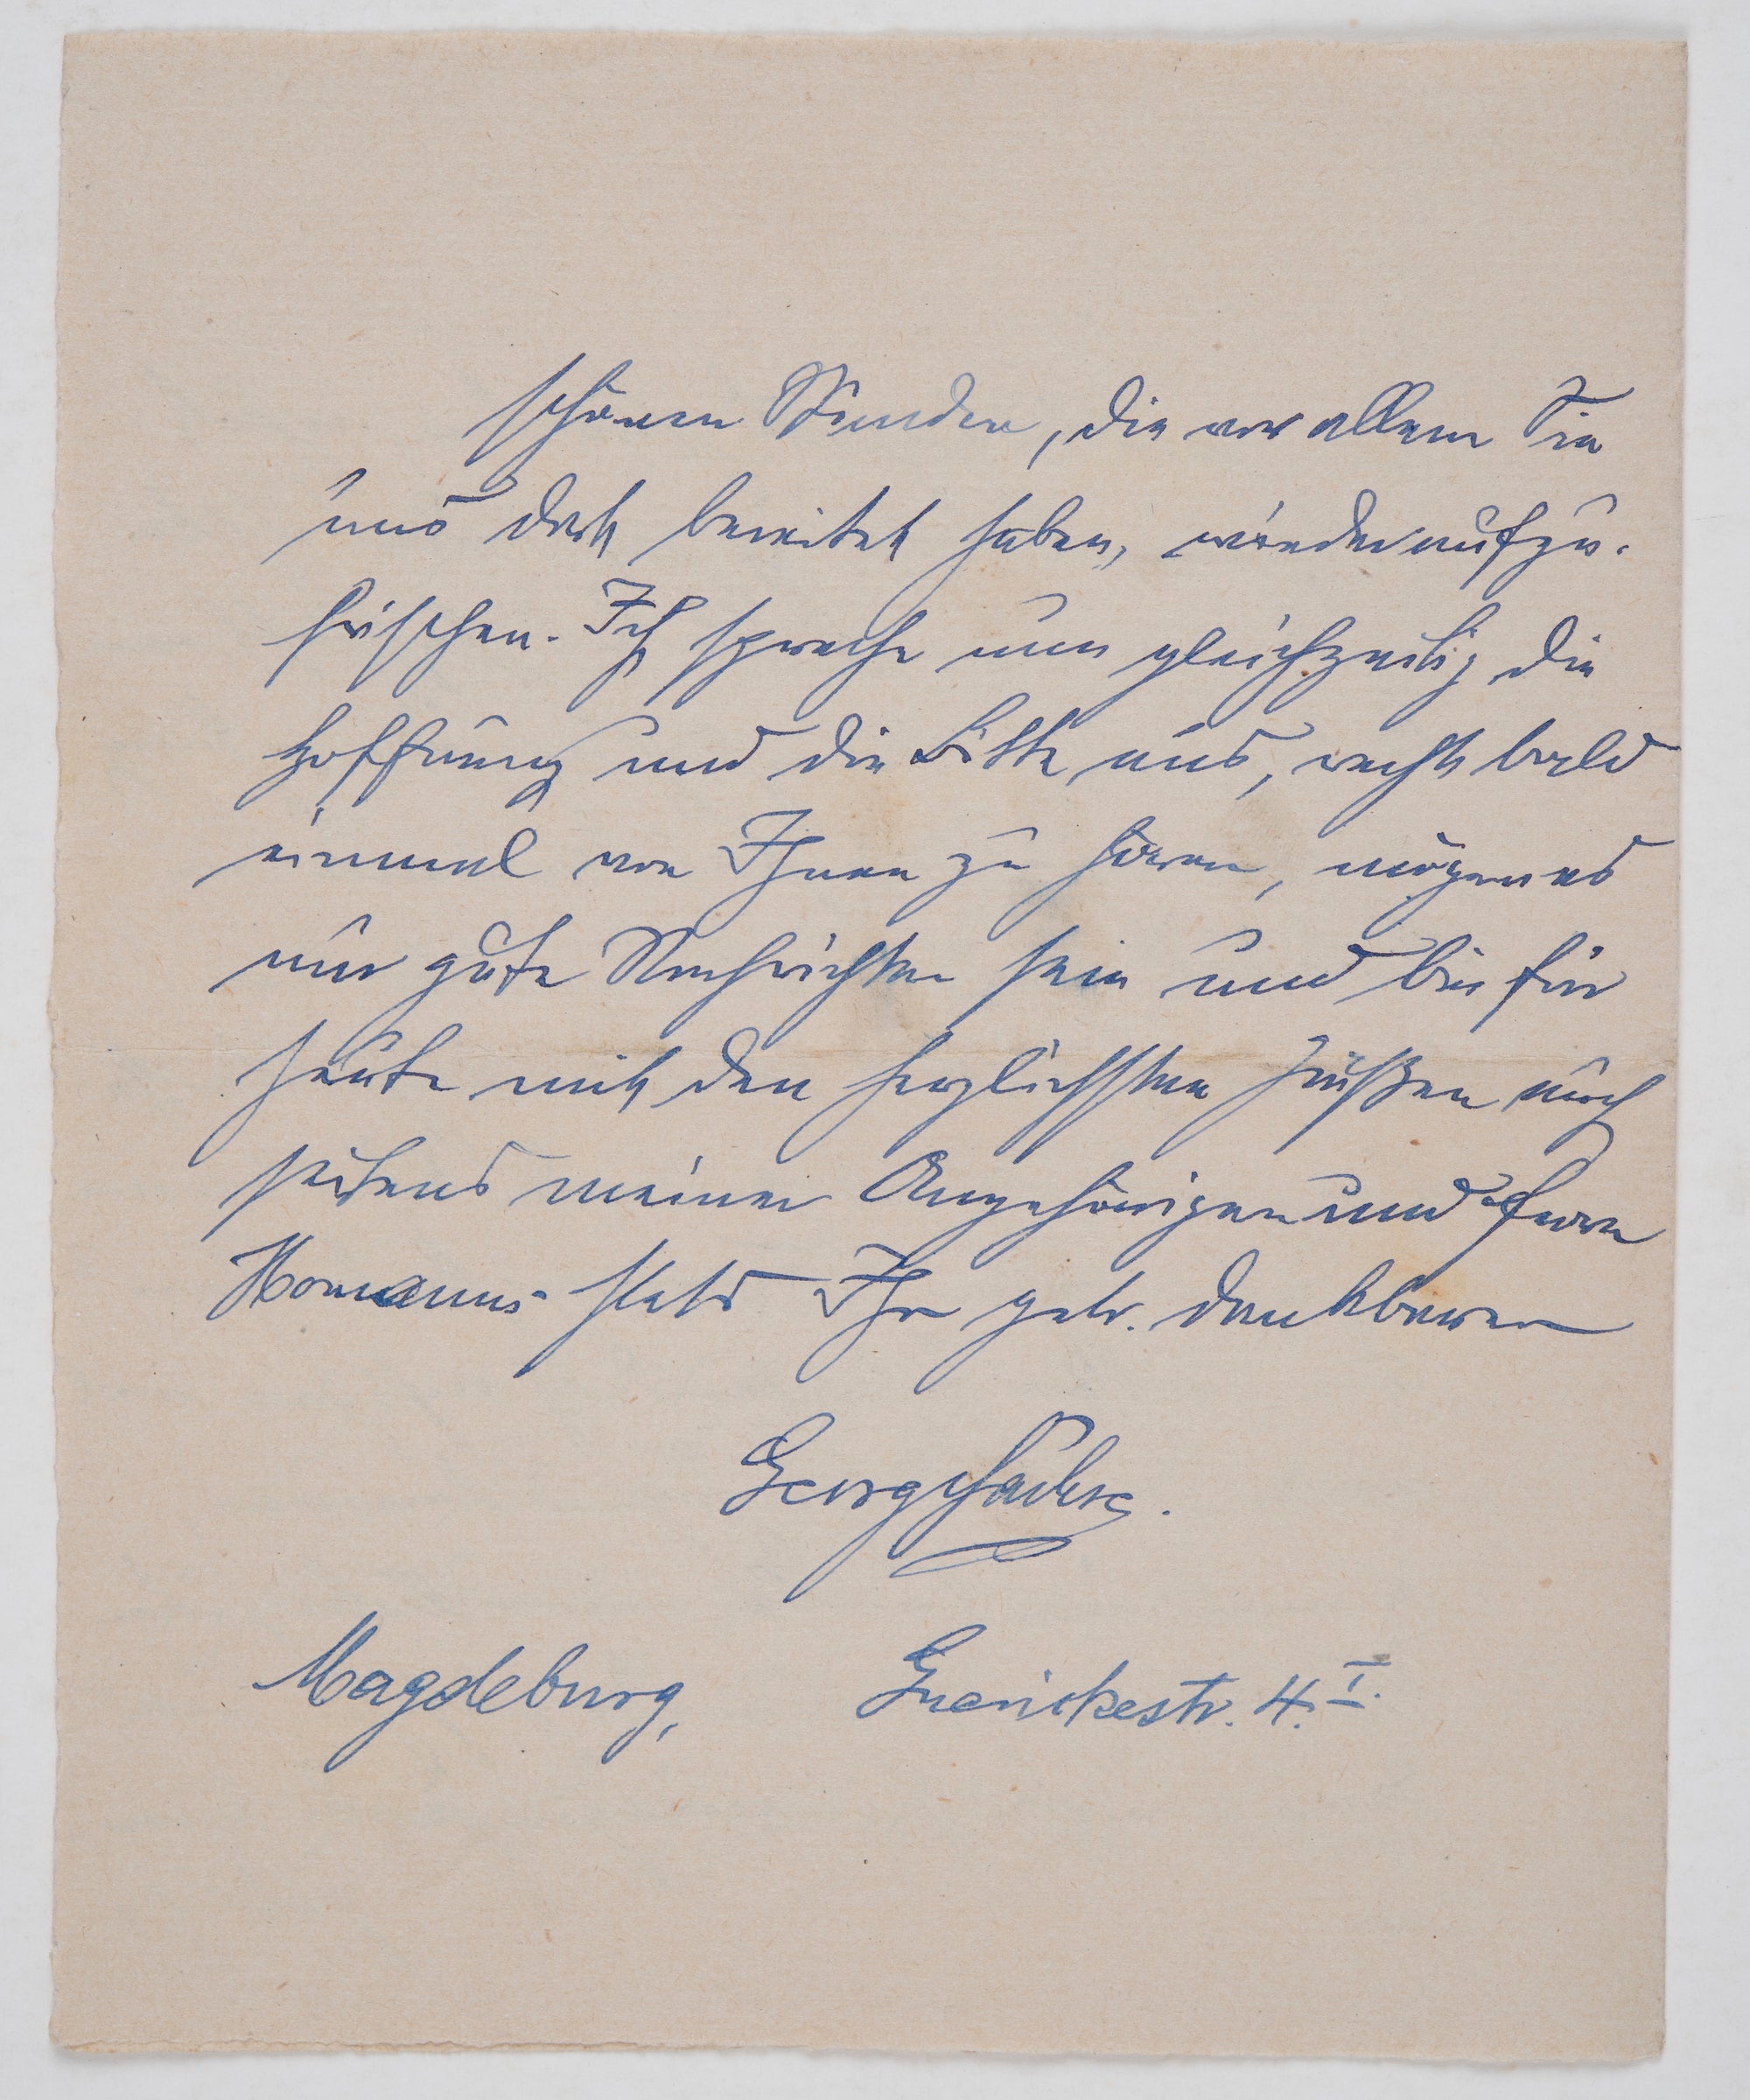 schönen Stunden, die vor allem Sie
uns dort bereitet haben, wiederaufzu-
frischen. Ich spreche nun gleichzeitig die
Hoffnung und die Bitte aus, recht bald
einmal von Ihnen zu hören, mögen es
nur gute Nachrichten sein und bin für
heute mit den herzlichsten Grüßen auch
seitens meiner Angehörigen und Herrn
Homanns stets Ihr getr. dankbarer
Georg
Magdeburg, Guerickestr. 4. I.